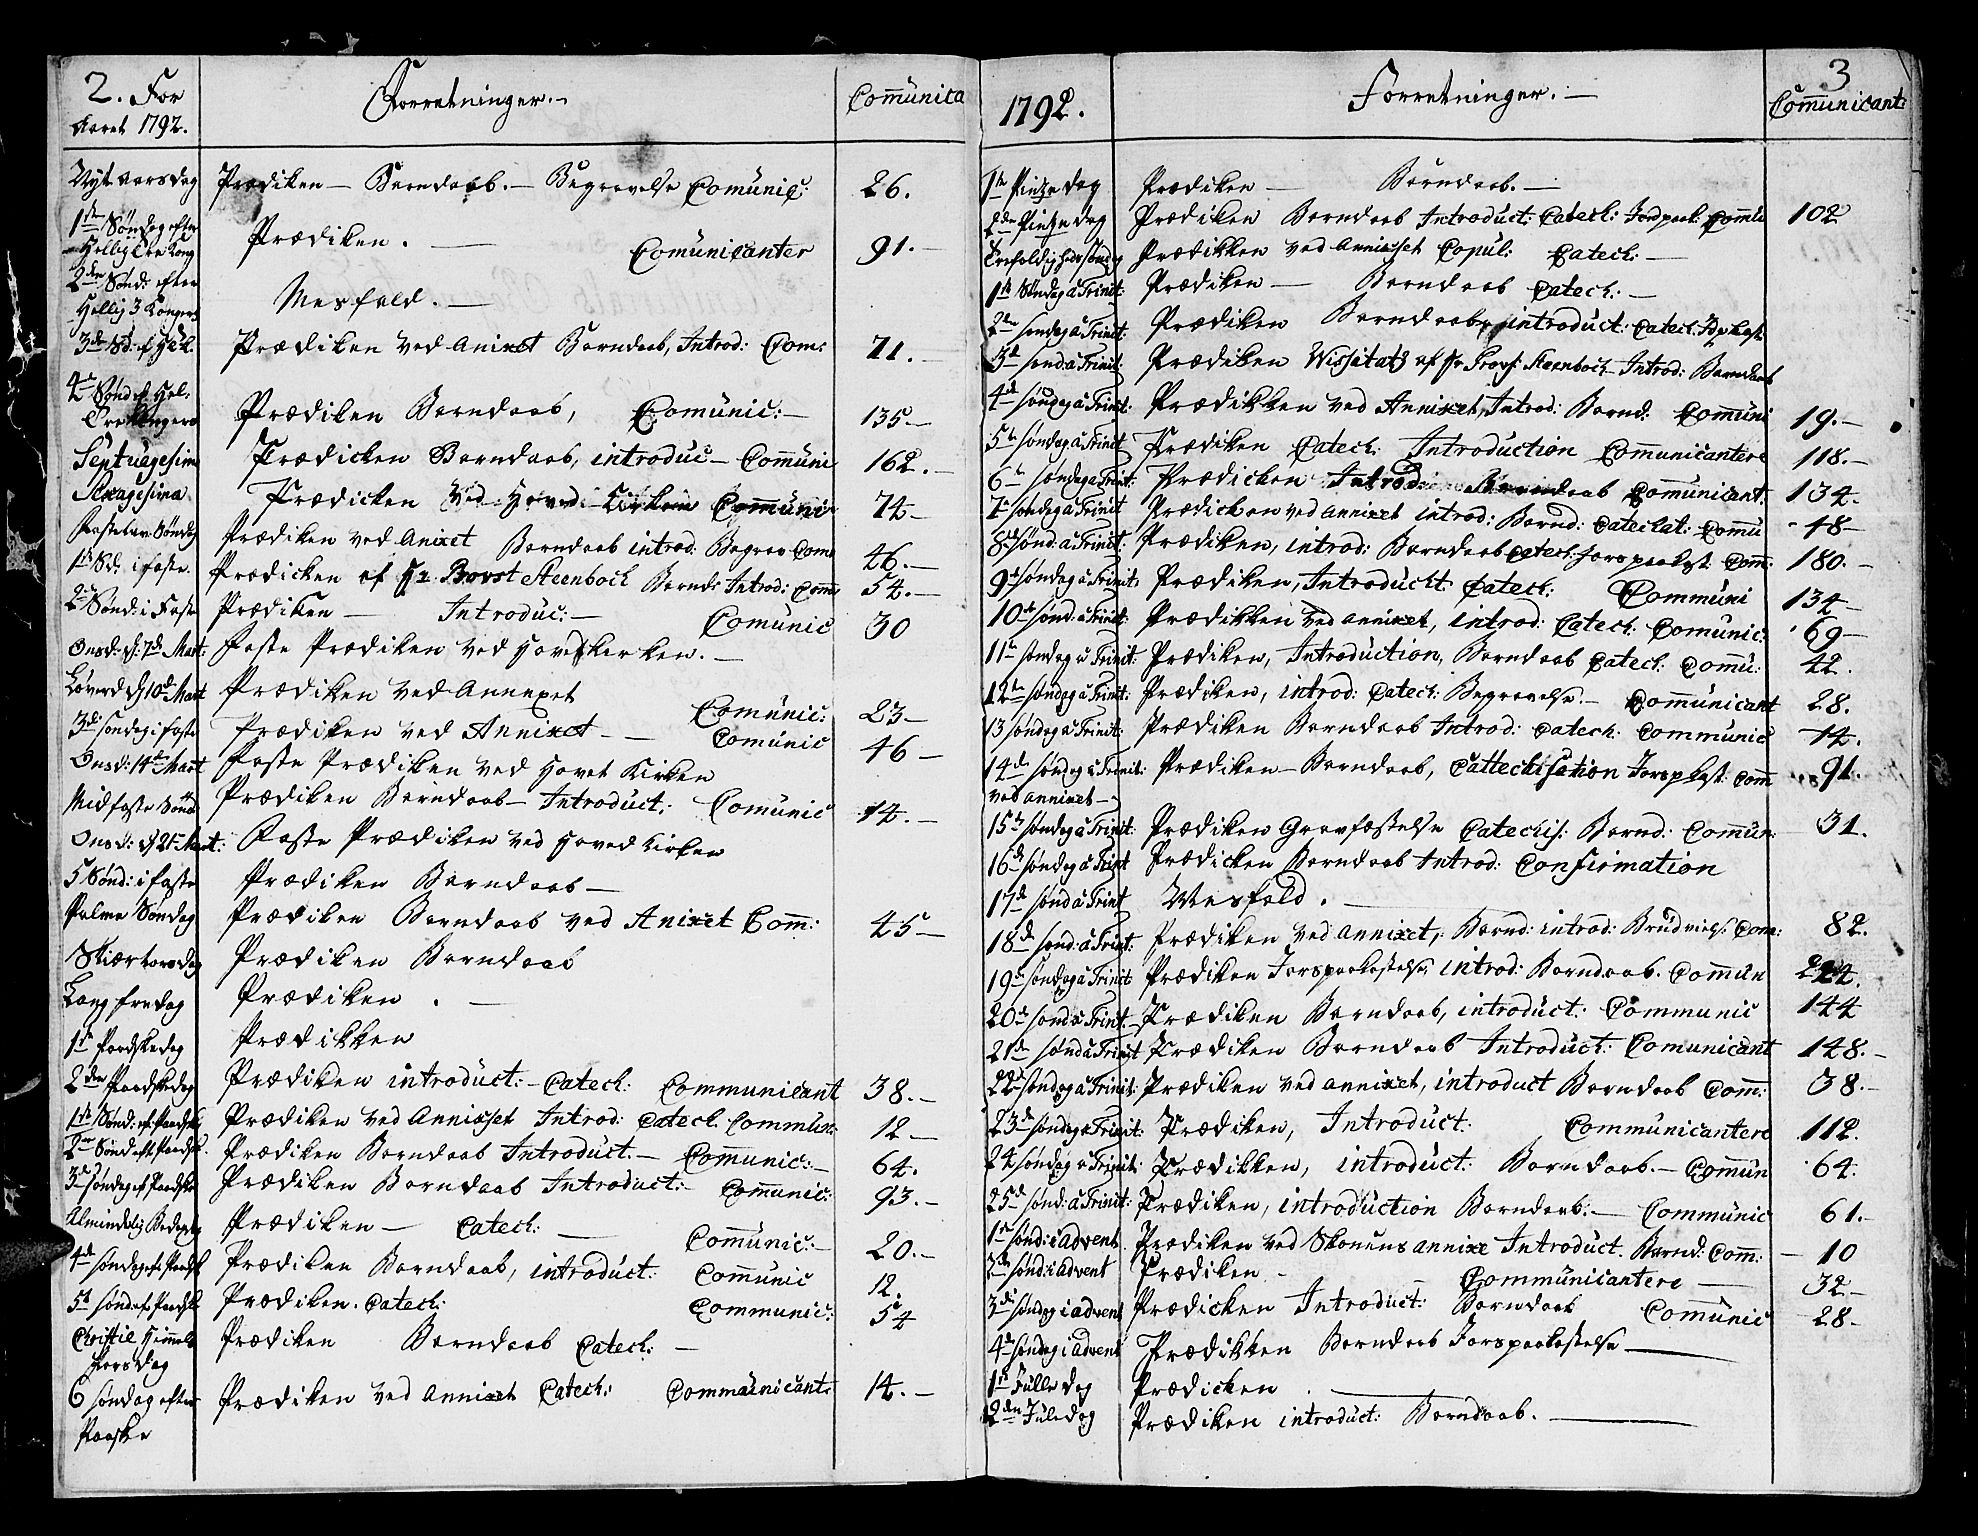 2. For
Aaret 1792.
Forretninger. -
Com̄ūnica
Nyt aarsdag Prædiken - Barndaab. - Begravelse Com̄ūnic: 26.
1ste Søndag efter
Hellig Tre Kong Prædiken. - Com̄ūnicanter 91. -
2den Sønd: efter
Hellig 3 Konger Mesfald. -
3de Sd: ef H: 3 K. Prædiken ved Anixet Barndaab, Introd: Com: 71. -
4de Sønd ef. Hel:
Tre Kongers Prædiken Barndaab, Com̄ūnic: - 135 -
Septuagesima Prædicken Barndaab, introduc - Com̄ūni 162. -
Sexagesima Prædicken ved Hoved-Kirken Com̄ūni 74 -
Fastelavns Søndag Prædiken ved Anixet Barndaab introd: Begrav Com̄ 46. -
1ste Sd: i faste Prædicken af Hr. Provst Steenboch Barnd: Introd: Com̄ 54. -
2den Sønd: i Faste Prædiken - Introduc: - Com̄ūnic 30
Onsd: d: 7de Mart: Faste Prædiken ved Hovedkirken. -
Løverd d 10de Mart Prædiken ved Annexet Com̄ūnic: 23 -
3die søndag i faste Prædiken ved Annixet - Com̄ūnic 46 -
Onsd: 14de Mart Faste Prædiken ved Hovet Kirken
Midfaste Sønd: Prædiken Barndaab - Introduct: Com̄ūnic 14. -
Onsd: d 21 Mart: Faste Prædiken ved Hoved Kirken
5 Sønd: i faste Prædiken Barndaab -
Palme Søndag Prædiken Barndaab ved Anixet Com̄: 45 -
Skiærtorsdag Prædiken Barndaab
Langfredag Prædiken. -
1ste Paaskedag Prædikken
2den Paaskedag Prædiken introduct: - Catech: Communicant 38. -
1ste Sønd: ef. Paaske Prædiken ved Annixset Introd: Catech. Commun: 12 -
2den Sønd eft Paaske Prædiken Barndaab Introduct. - Com̄unic: - 64.
3die Søndag ef. Paaske Prædiken Barndaab Introduct: - Com̄unic: 93. -
Almindelig Bededag Prædiken - Catech: - Com̄ūnic: - 20. -
4de søndag ef. Paaske Prædiken Barndaab, introduct: Com̄ūnic 12.
5te sønd ef. Paaske Prædiken. Catech: Communic: 54
Christie Himmel-
farsdag Prædiken Barndaab Catech: -
6 søndag efter
Paaske Prædiken ved Annixet Catech: Communicant: 14. -
1792.
Forretninger. -
3
Com̄unicant:
1ste Pintzedag Prædiken - Barndaab. -
2den Pintzedag Prædiken Barndaab Introduct: Catech: Jordpaak: Com̄ū 102
Trefoldigheds søndag Prædikken ved Annixset Copul: Catech: -
1ste Søndag a Trinit: Prædiken - Barndaab Catech: -
2den søndag a Trinit: Prædiken Barndaab, introduct: Catech:
3de sønd: a Trinit: Prædiken Vissitatz af Hr Provst Steenboch Introd: Barndaab
4de søndag a Trinit: Prædikken ved Annixet, Introd: Barnd: Com̄ūni 19. -
5te søndag a Trinit Prædiken Catech: Introduction Com̄unicantere 118. -
6te søndag a Trinit: Prædicken Introd: Barndaab Com̄ūnicant: 134.
7de søndag a Trinit Prædicken ved Annixet introd: Barnd: Catechat: Com̄ū 48 -
8de sønd: a Trinit: Prædiken, introd: Barndaab Catech: Jorspaakast. Com̄: 180. -
9de søndag a Trinit: Prædiken, Introducht Catech: Com̄ūni 134 -
10de sønd: a Trinit: Prædikken ved Annixet, introd: Catech: Com̄ūnic: 69 -
11te søndag a Trinit: Prædiken, Introdūction, Barndaab Catech: Com̄ū: 42.
12te søndag a Trinit: Prædiken, introd: Catech: Begravelse. - Com̄ūnicant 28.
13 søndag a Trinit: Prædiken Barndaab Introd: Catech: Communic 14.
14de søndag a Trinit: Prædiken - Barndaab, Cattechisation Jorspkast: Com̄ 91.
ved Annixet -
15de søndag a Trinit: Prædiken Gravfæstelse Catechis: Barnd: Com̄ūn: 31.
16de søndag a Trinit Prædicken Barndaab Introd: Confirmation
17de sønd a Trinit Mesfald. -
18de sønd: a Trinit: Prædiken ved Annixet, Barnd: introd: Brūdviels: Com: 82.
19de søndag a Trinit Prædiken Jorspaakastelse, introd: Barndaab. Com̄ūn 224.
20de sønd a Trinit - Prædiken Barndaab, introdūct: Communic 144
21de sønd a Trinit Prædiken Barndaab Introdūct: Comunicant 148. -
22de søndag a Trinit: Prædiken ved Annixet, introduct Barndaab Com̄: 38. -
23de søndag a Trinit: Prædiken, Introdūct: Commūnicantere 112.
24 søndag a Trinit: Prædikken, introdūct: Barndaab. - Com̄ūn 64.
25de sønd: a Trinit: Prædiken, introdūction Barndaab. - Commūnic 61. -
1ste sønd: i advent Prædiken ved Skonens Annixe Introdūct. Barnd: Com̄: - 10
2den sønd: i advent Prædiken - Com̄ūnicantere - 32 -
3die søndag i advent Prædicken Introdūct: Barndaab Com̄ūnic 28 -
4de søndag i advent Prædikken Barndaab Jorspaakastelse -
1ste Julle dag Prædicken. -
2den Juledag Prædiken introdūct: Barndaab. -